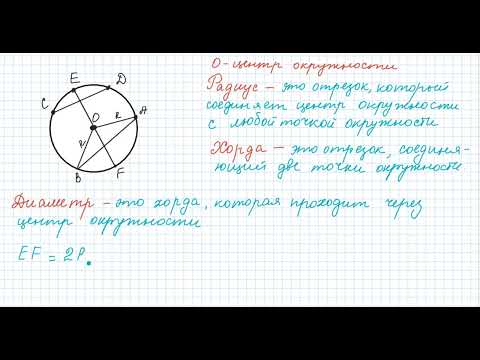 E
D
C
O
R
A
R
B
F
О-центр окружности
Радиус – это отрезок, который
соединяет центр окружности
с любой точкой окружности
Хорда – это отрезок, соединя-
ющий две точки окружности
Диаметр – это хорда, которая проходит через
центр окружности
EF = 2R